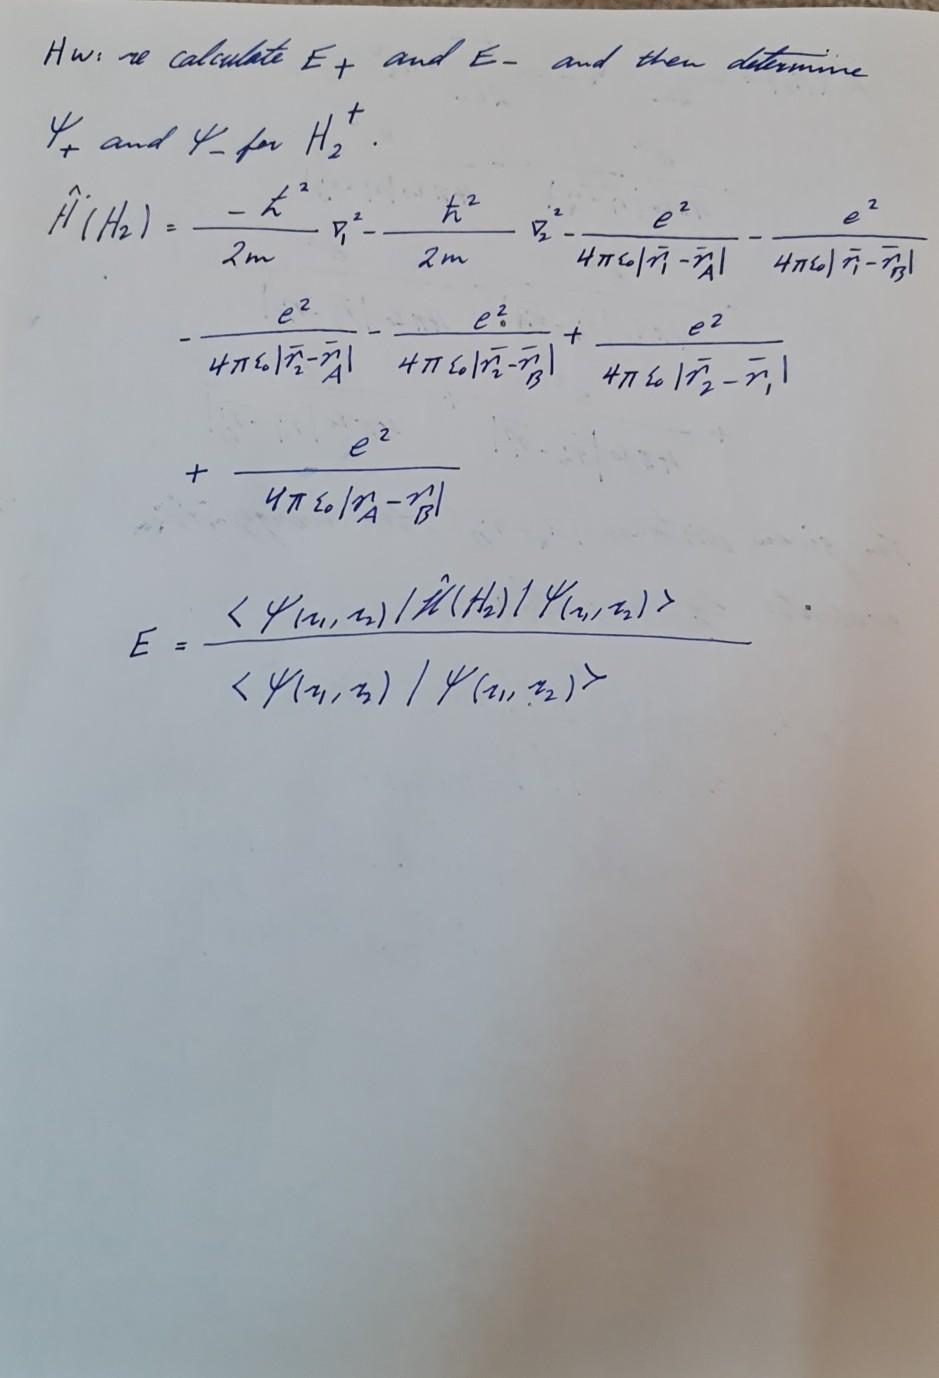 Hw: re calculate E₊ and E₋ and then determine
Ψ₊ and Ψ₋ for H₂⁺.
Ĥ(H₂) = -ħ²/2m ∇₁² - ħ²/2m ∇₂² - e²/4πε₀|r̄₁-r̄_A| - e²/4πε₀|r̄₁-r̄_B|
- e²/4πε₀|r̄₂-r̄_A| - e²/4πε₀|r̄₂-r̄_B| + e²/4πε₀|r̄₂-r̄₁|
+ e²/4πε₀|r̄_A-r̄_B|
E = <Ψ(r₁, r₂)|Ĥ(H₂)|Ψ(r₁, r₂)> / <Ψ(r₁, r₂)|Ψ(r₁, r₂)>